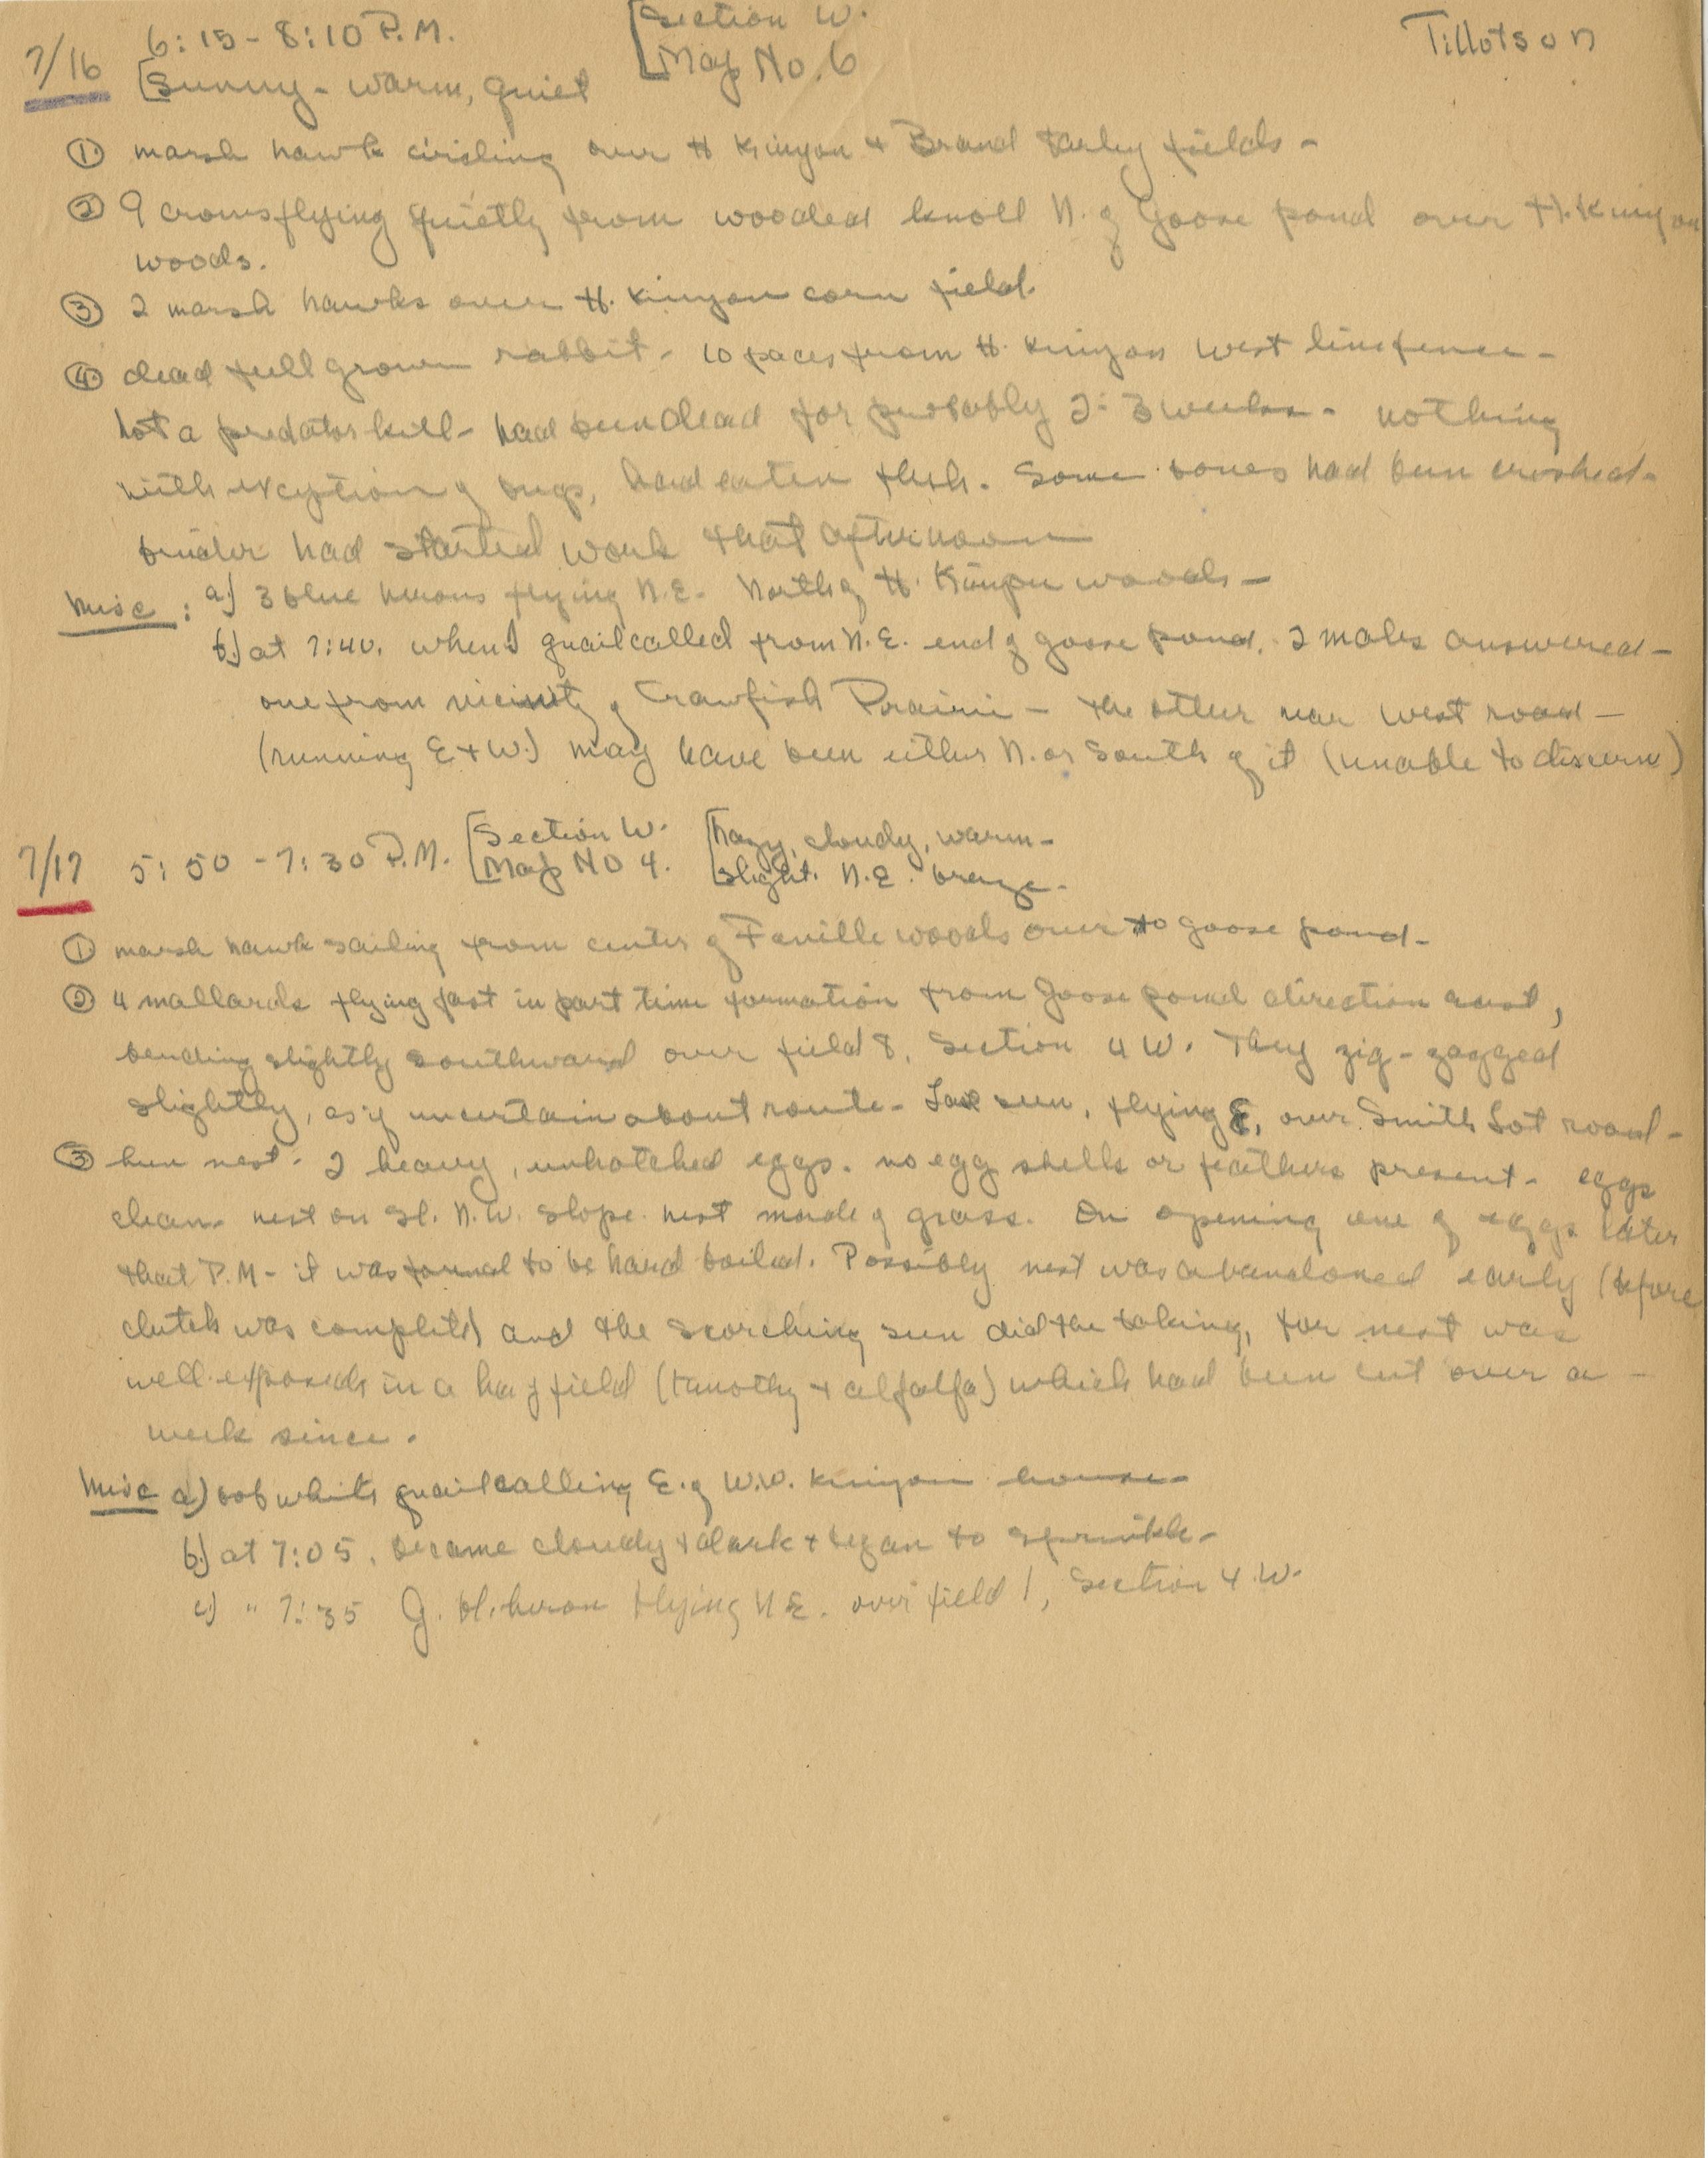 7/16 6:15 - 8:10 P.M. [Section W. Tillotson
[Sunny - warm, quiet [Map No. 6
① marsh hawk circling over H Kinyon + Brand barley fields -
② 9 crows flying quietly from wooded knoll N. of Goose pond over H. Kinyon
woods.
③ 2 marsh hawks over H. Kinyon corn field.
④ dead full grown rabbit - 10 paces from H. Kinyon West line fence -
not a predator kill - had been dead for probably 2-3 weeks - nothing
with exception of bugs, had eaten flesh. Some bones had been crushed -
binder had started work that afternoon
Misc: a.) 3 blue herons flying N.E. North of H. Kinyon woods -
b.) at 7:40, when I quail called from N.E. end of goose pond, 2 males answered -
one from vicinity of Crawfish Prairie - the other near west road -
(running E + W.) may have been either N. or South of it (unable to discern)
7/17 5:50 - 7:30 P.M. [Section W. [hazy, cloudy, warm -
[Map No 4. [slight N.E. breeze -
① marsh hawk sailing from center of Faville woods over to goose pond -
② 4 mallards flying fast in part time formation from Goose pond direction east,
bending slightly southward over field 8, Section 4 W. They zig-zagged
slightly, as if uncertain about route - Last seen, flying E, over Smith Lot road -
③ hen nest - 2 heavy, unhatched eggs. no egg shells or feathers present - eggs
clean - nest on sl. N.W. slope. nest made of grass. On opening one of eggs later
that P.M - it was found to be hard boiled. Possibly nest was abandoned early (before
clutch was complete) and the scorching sun did the baking, for nest was
well exposed in a hay field (timothy + alfalfa) which had been cut over a -
week since.
Misc a) bob white quail calling E. of W.W. Kinyon house -
b.) at 7:05, became cloudy + dark + began to sprinkle -
c) " 7:35 G. bl. heron flying N E. over field 1, Section 4 W.